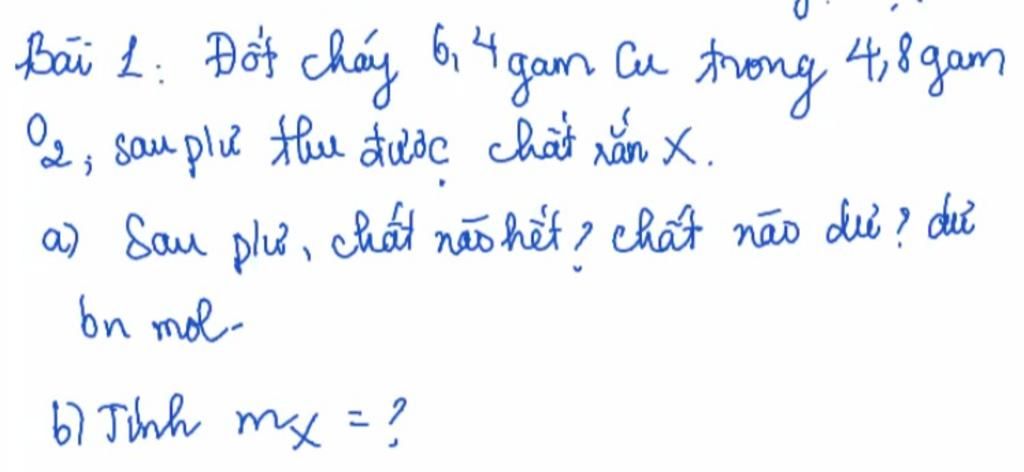 Bài 1: Đốt cháy 6,4 gam Cu trong 4,8 gam
O2, sau plư thu được chất rắn X.
a) Sau plư, chất nào hết? chất nào dư? dư
bn mol-
b) Tính mX = ?